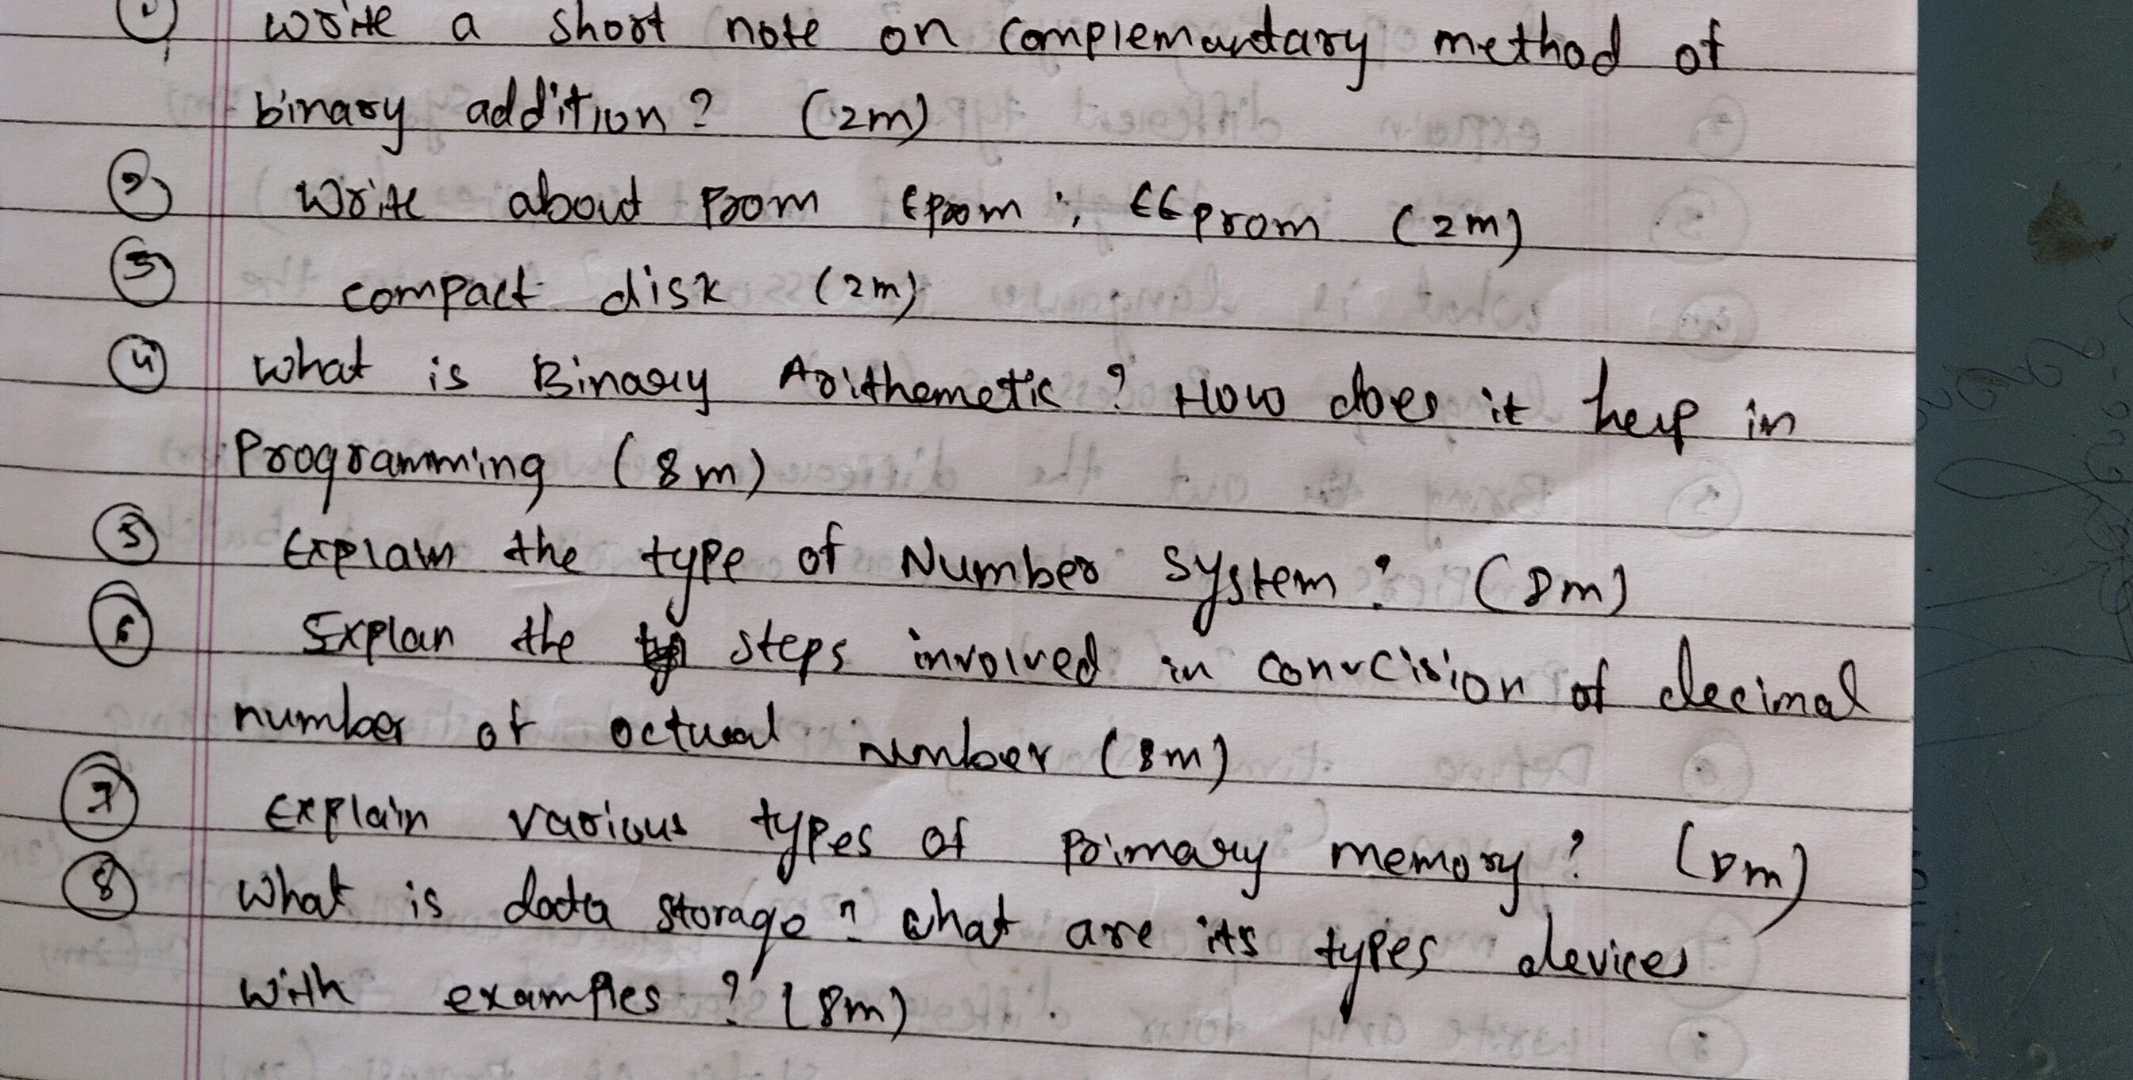 ① Write a short note on Complemantary method of
binary addition? (2m)
② Write about Prom Eprom ; EEprom (2m)
③ compact disk (2m)
④ what is Binary Arithemetic? How does it help in
Programming (8m)
⑤ Explain the type of Number system? (8m)
⑥ Explan the steps involved in convcision of decimal
number of octual number (8m)
⑦ Explain various types of Primary memory? (8m)
⑧ What is data storage? what are its types devices
with examples? (8m)